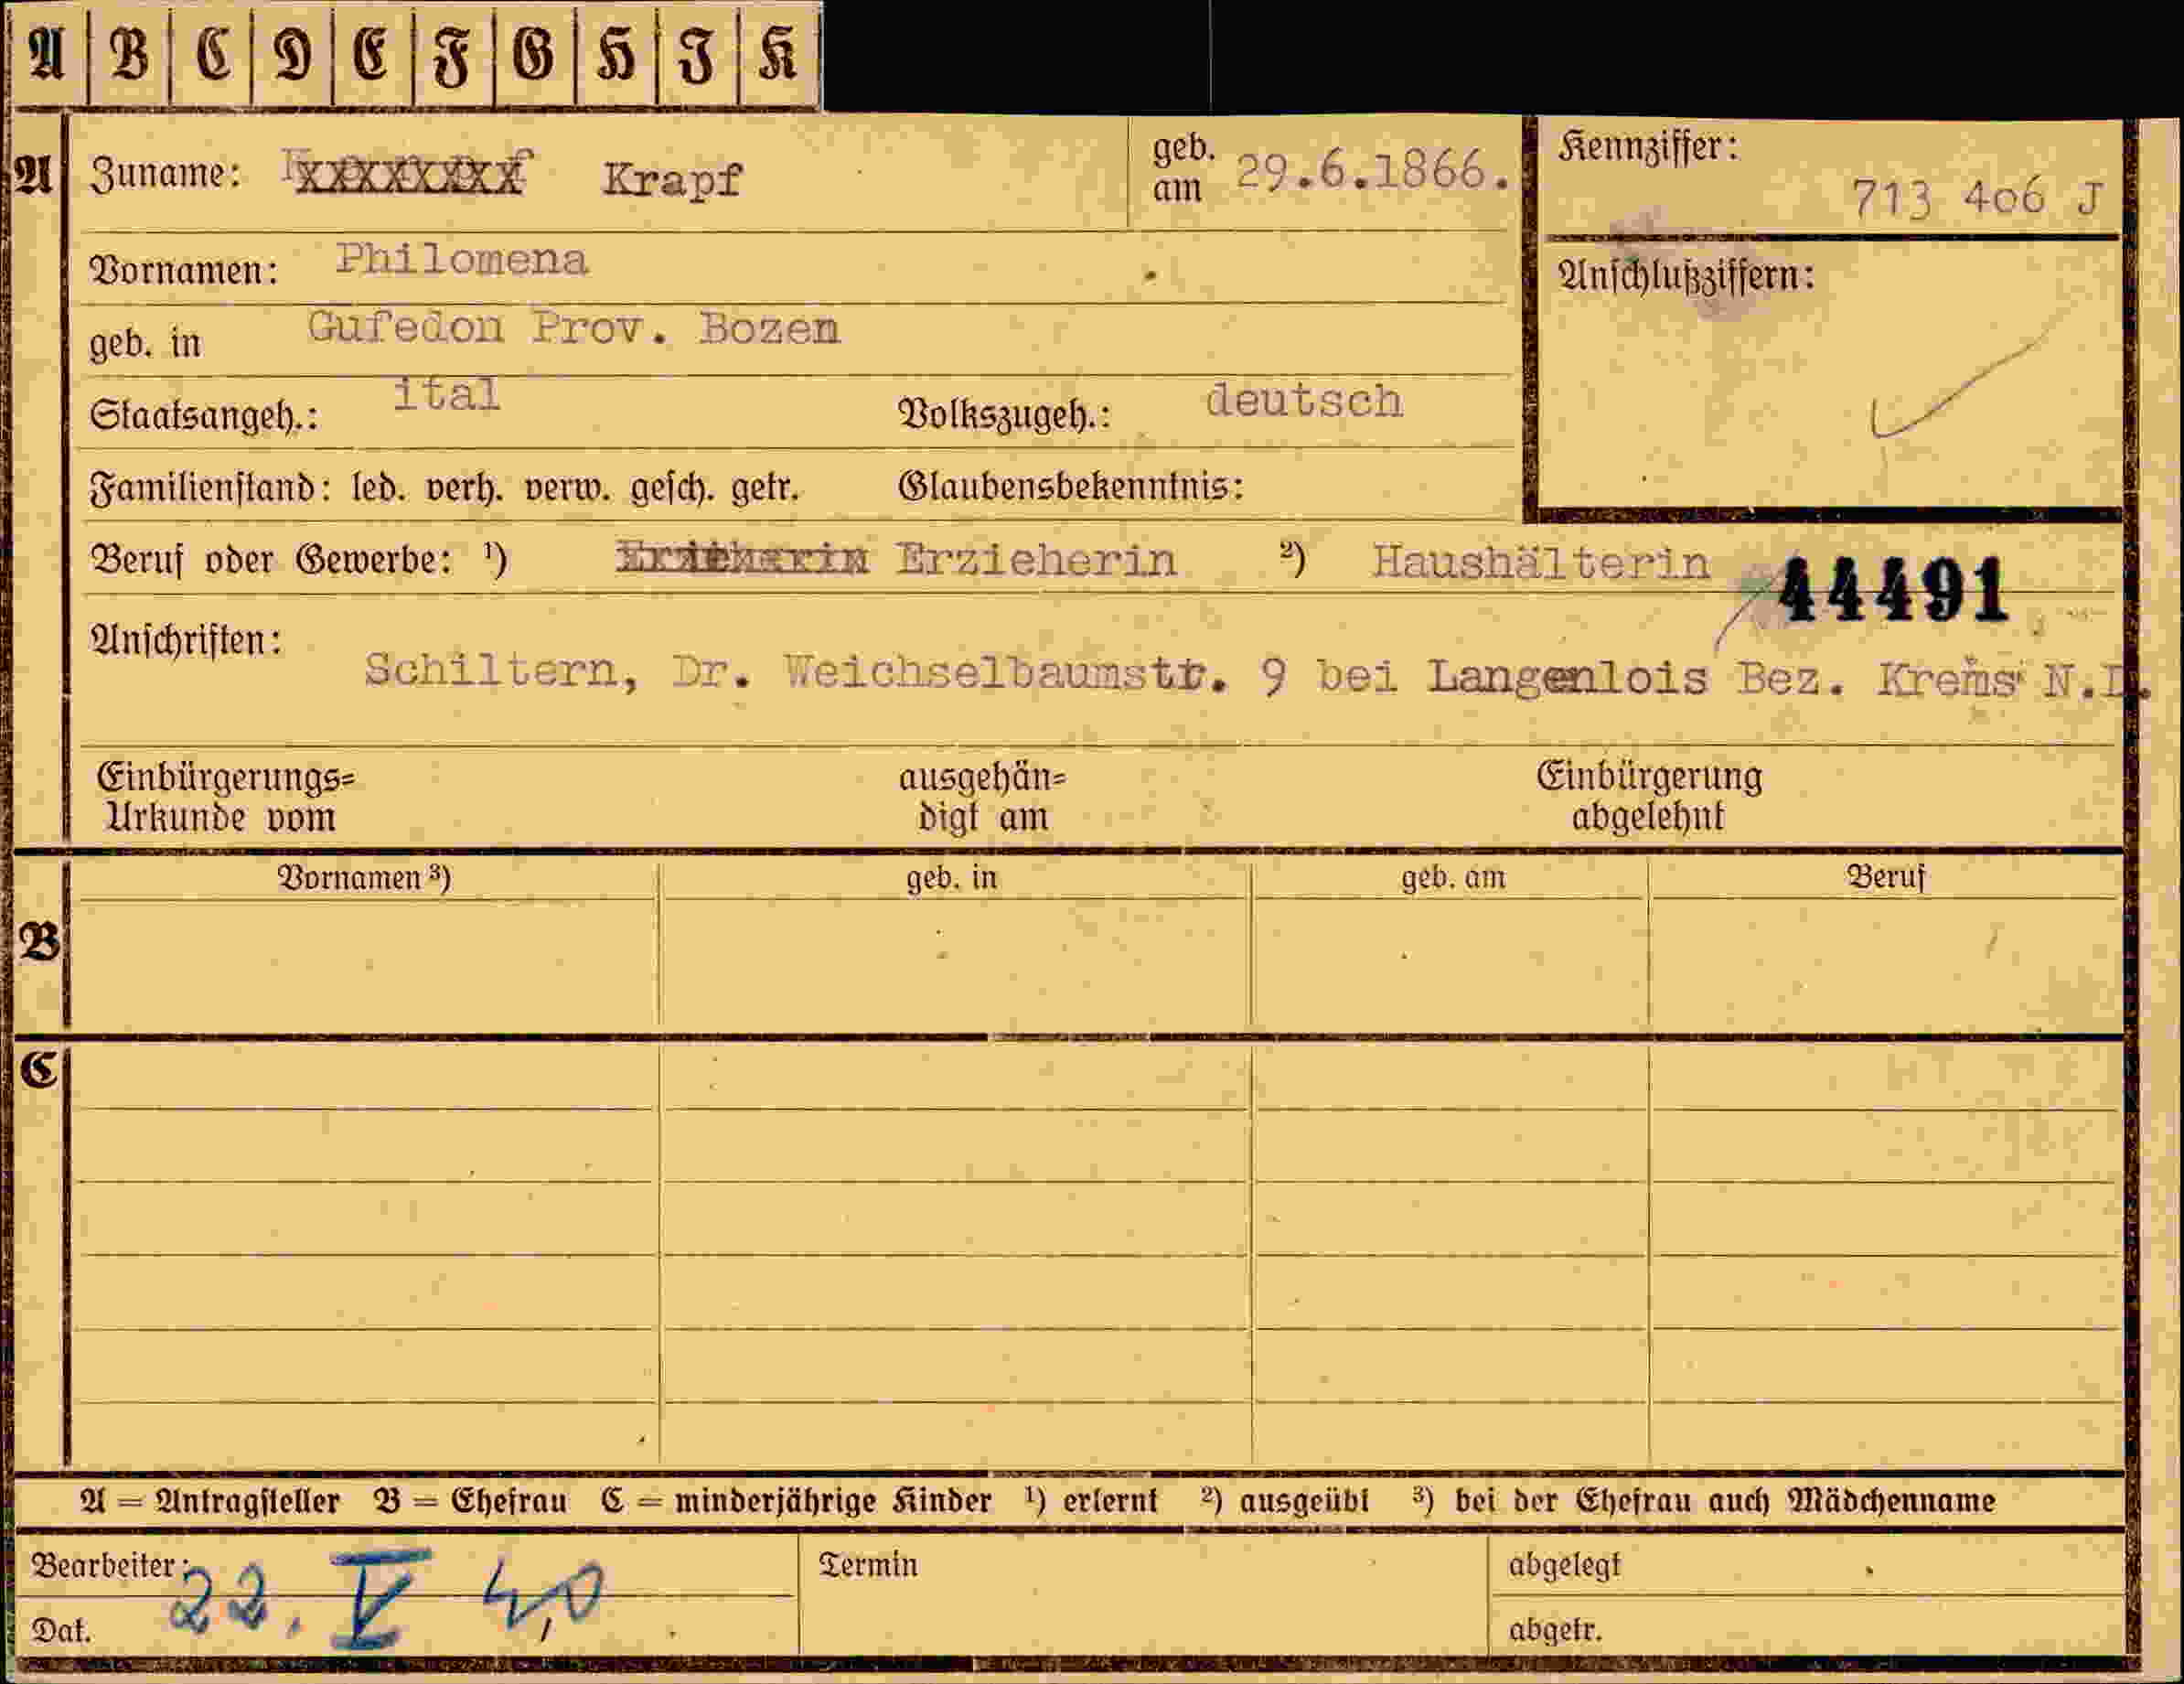 A B C D E F G H I K
A Zuname: Krapf geb. am 29.6.1866. Kennziffer: 713 4o6 J
Vornamen: Philomena Anschlußziffern:
geb. in Gufedon Prov. Bozen
Staatsangeh.: ital Volkszugeh.: deutsch
Familienstand: led. verh. verw. gesch. getr. Glaubensbekenntnis:
Beruf oder Gewerbe: ¹) Erzieherin ²) Haushälterin
44491
Anschriften:
Schiltern, Dr. Weichselbaumstr. 9 bei Langenlois Bez. Krems N.D.
Einbürgerungs= ausgehän= Einbürgerung
Urkunde vom digt am abgelehnt
Vornamen ³) geb. in geb. am Beruf
B
C
A = Antragsteller B = Ehefrau C = minderjährige Kinder ¹) erlernt ²) ausgeübt ³) bei der Ehefrau auch Mädchenname
Bearbeiter: Termin abgelegt
22. V 40
Dat. abgetr.